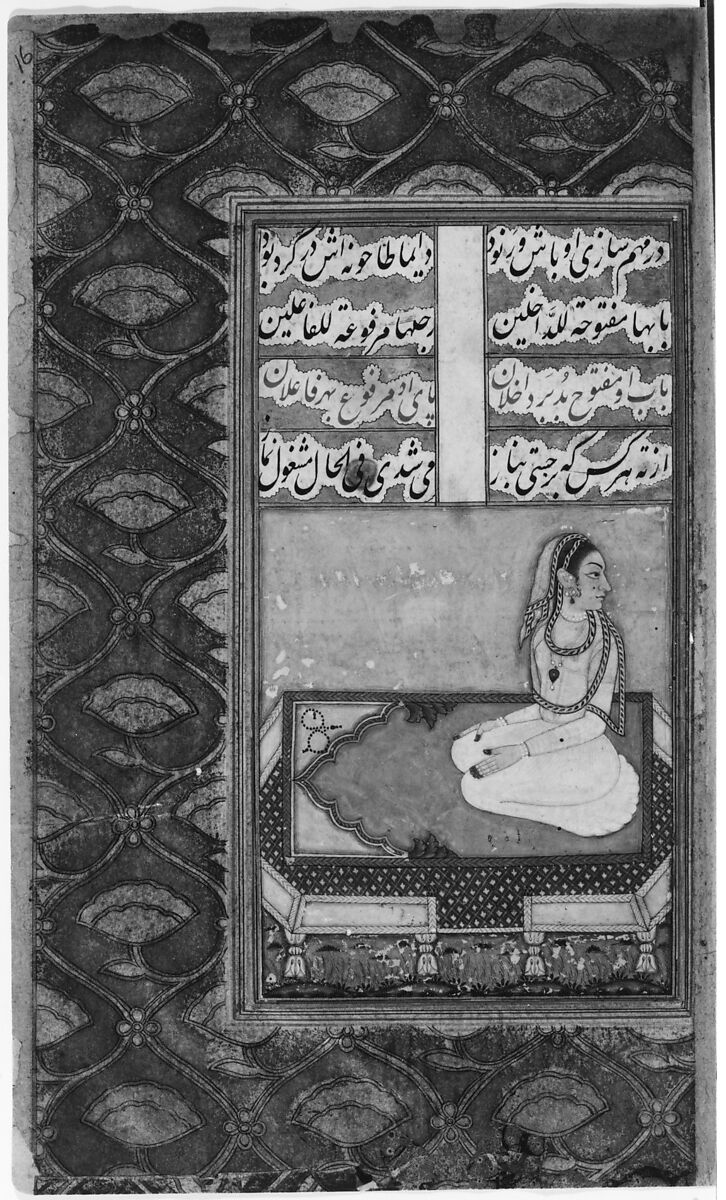 16
در مهم سازی اوباش و رنود دایما طاحونه اش در گرد بود
بابها مفتوحة للداخلین رجلها مرفوعة للفاعلین
باب او مفتوح بد بر داخلان پای او مرفوع بهر فاعلان
از ته هر کس که برجستی بناز می شدی فی الحال مشغول نماز